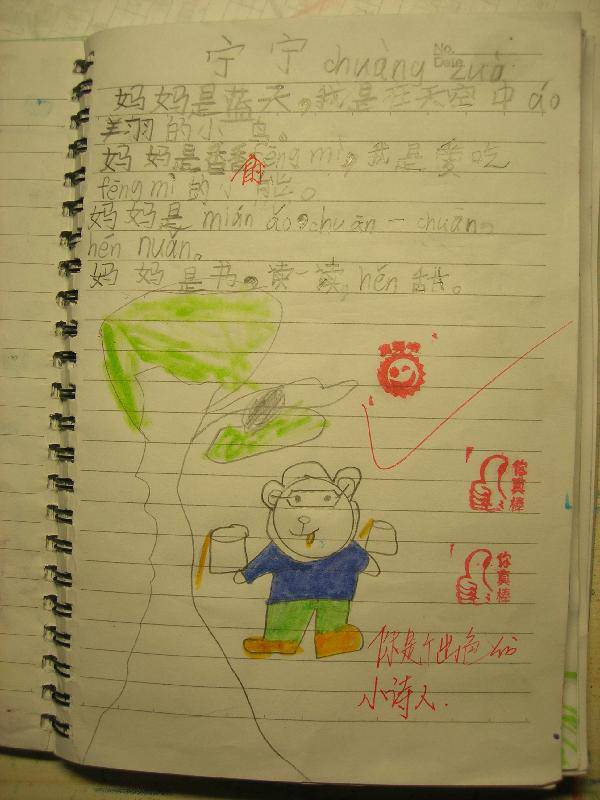 宁宁 chuàng zuò
No.
Date
妈妈是蓝天,我是在天空中 áo
翔的小鸟。
妈妈是香香的 fēng mì,我是爱吃
fēng mì 的小能。
妈妈是 mián áo,chuān 一 chuān,
hén nuǎn。
妈妈是书,读一读,hén 。
你真棒
你真棒
你是个出色的
小诗人.